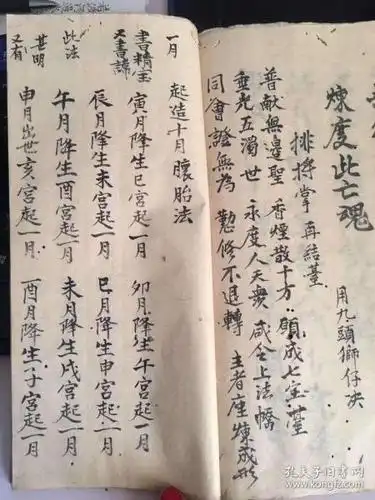 煉度此亡魂
用九頭獅仔決
排將掌 再結臺
普獻無邊聖 香煙散十方 願成七宝臺
垂光五濁世 永度人天衆 咸令上法橋
同會證無為 勤修不退轉 主者座煉成形
一月
起造十月釀胎法
又書諱
寅月降生巳宮起一月 卯月降生午宮起一月
辰月降生未宮起一月 巳月降生申宮起一月
此法
午月降生酉宮起一月 未月降生戌宮起一月
甚明
又有
申月出世亥宮起一月 酉月降生子宮起一月
孔夫子旧书网